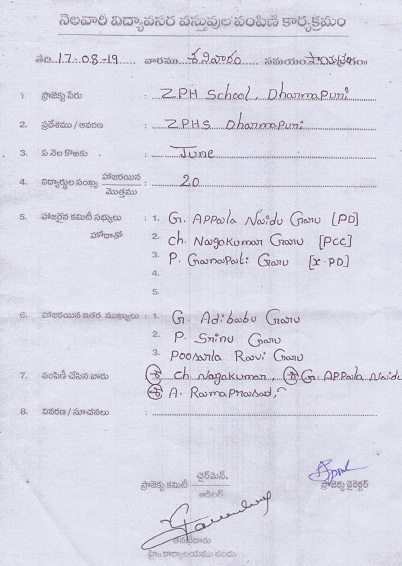 నెలవారీ విద్యావసర వస్తువుల పంపిణీ కార్యక్రమం
తేది 17-08-19 వారము శనివారం సమయం సాయంత్రం
1. ప్రాజెక్టు పేరు : ZPH School, Dharmapuri
2. ప్రదేశము / ఆవరణ : ZPHS Dharmapuri
3. ఏ నెల కొఱకు : June
4. విద్యార్థుల సంఖ్య హాజరయిన / మొత్తము : 20
5. హాజరైన కమిటీ సభ్యులు : 1. G. Appala Naidu Garu [PD]
హోదాతో 2. Ch. Nagakumar Garu [PCC]
3. P. Ganapati Garu [X-PD]
4.
5.
6. హాజరయిన ఇతర ముఖ్యులు : 1. G. Adibabu Garu
2. P. Srinu Garu
3. Poosarla Ravi Garu
7. పంపిణీ చేసిన వారు : శ్రీ Ch Nagakumar, శ్రీ G. Appala Naidu
శ్రీ A. Ramaprasad,
8. వివరణ / సూచనలు :
ప్రాజెక్టు కమిటీ చైర్‌మెన్,
ప్రాజెక్టు డైరెక్టర్